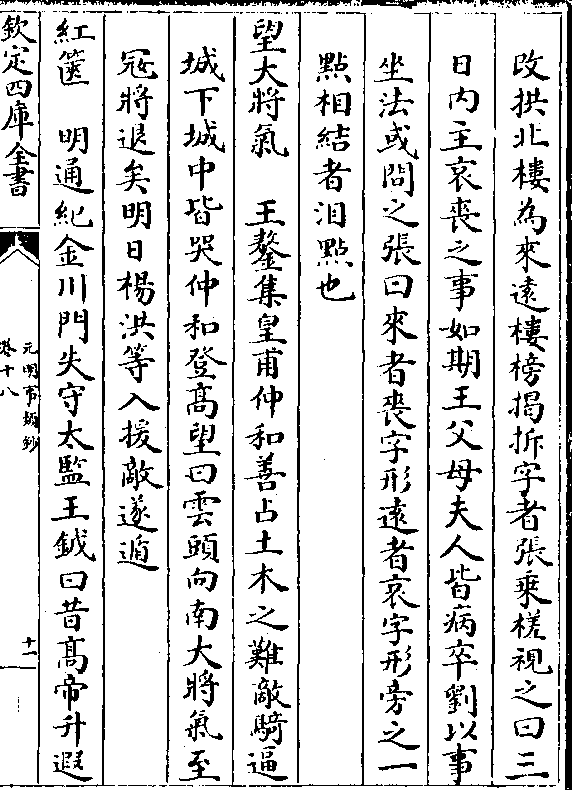 改拱北樓為來遠樓榜揭拆字者張乘槎視之曰三
日内主哀喪之事如期王父母夫人皆病卒劉以事
坐法或問之張曰來者喪字形遠者哀字形旁之一
點相結者淚點也
望大將氣　王鏊集皇甫仲和善占土木之難敵騎逼
城下城中皆哭仲和登髙望曰雲頭向南大將氣至
冦將退矣明日楊洪等入援敵遂遁
紅篋　明通紀金川門失守太監王鉞曰昔髙帝升遐
欽定四庫全書
元明事類鈔
卷十八
十一